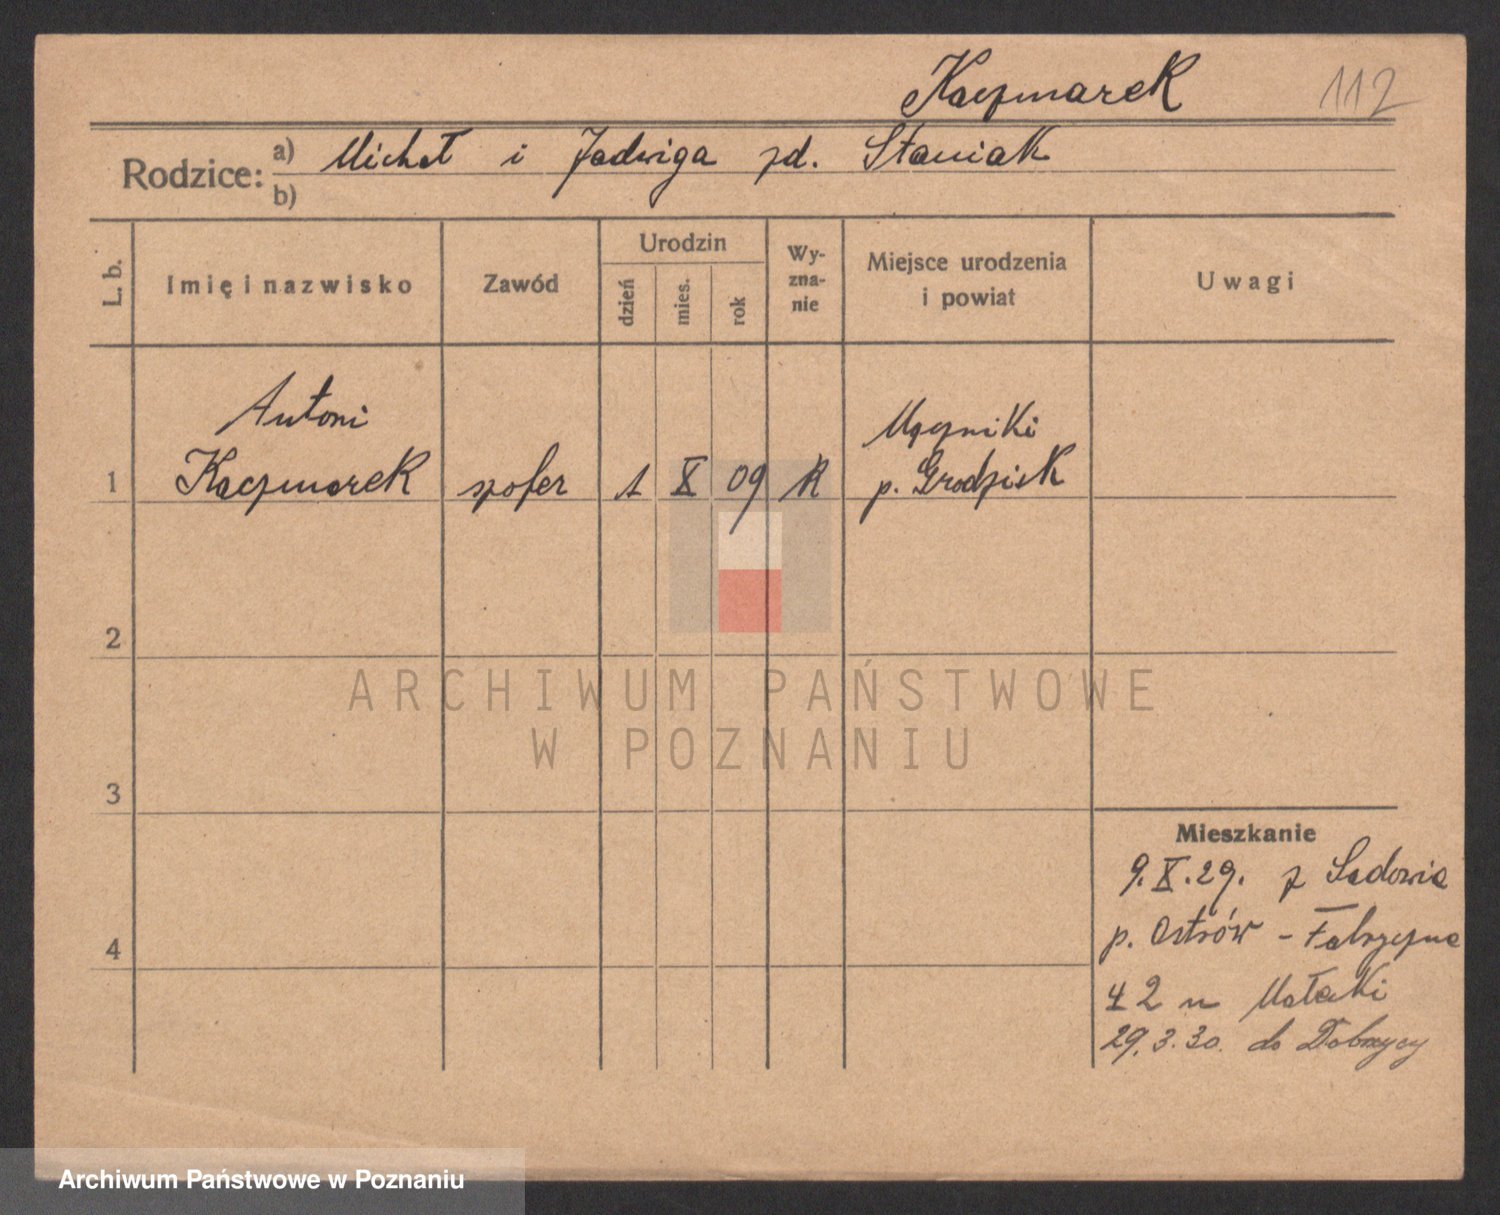 Kaczmarek 112
Rodzice: a) Michał i Jadwiga zd. Staniak
b)
L. b.
Imię i nazwisko
Zawód
Urodzin
dzień
mies.
rok
Wy-
zna-
nie
Miejsce urodzenia
i powiat
Uwagi
Antoni
Mączniki
1 Kaczmarek szofer 1 X 09 R p. Grodzisk
2
ARCHIWUM PAŃSTWOWE
W POZNANIU
3
Mieszkanie
9.X.29. z Sadowie
p. Ostrów - Fabryczna
4
42 u Małecki
29.3.30. do Dobrzycy
Archiwum Państwowe w Poznaniu